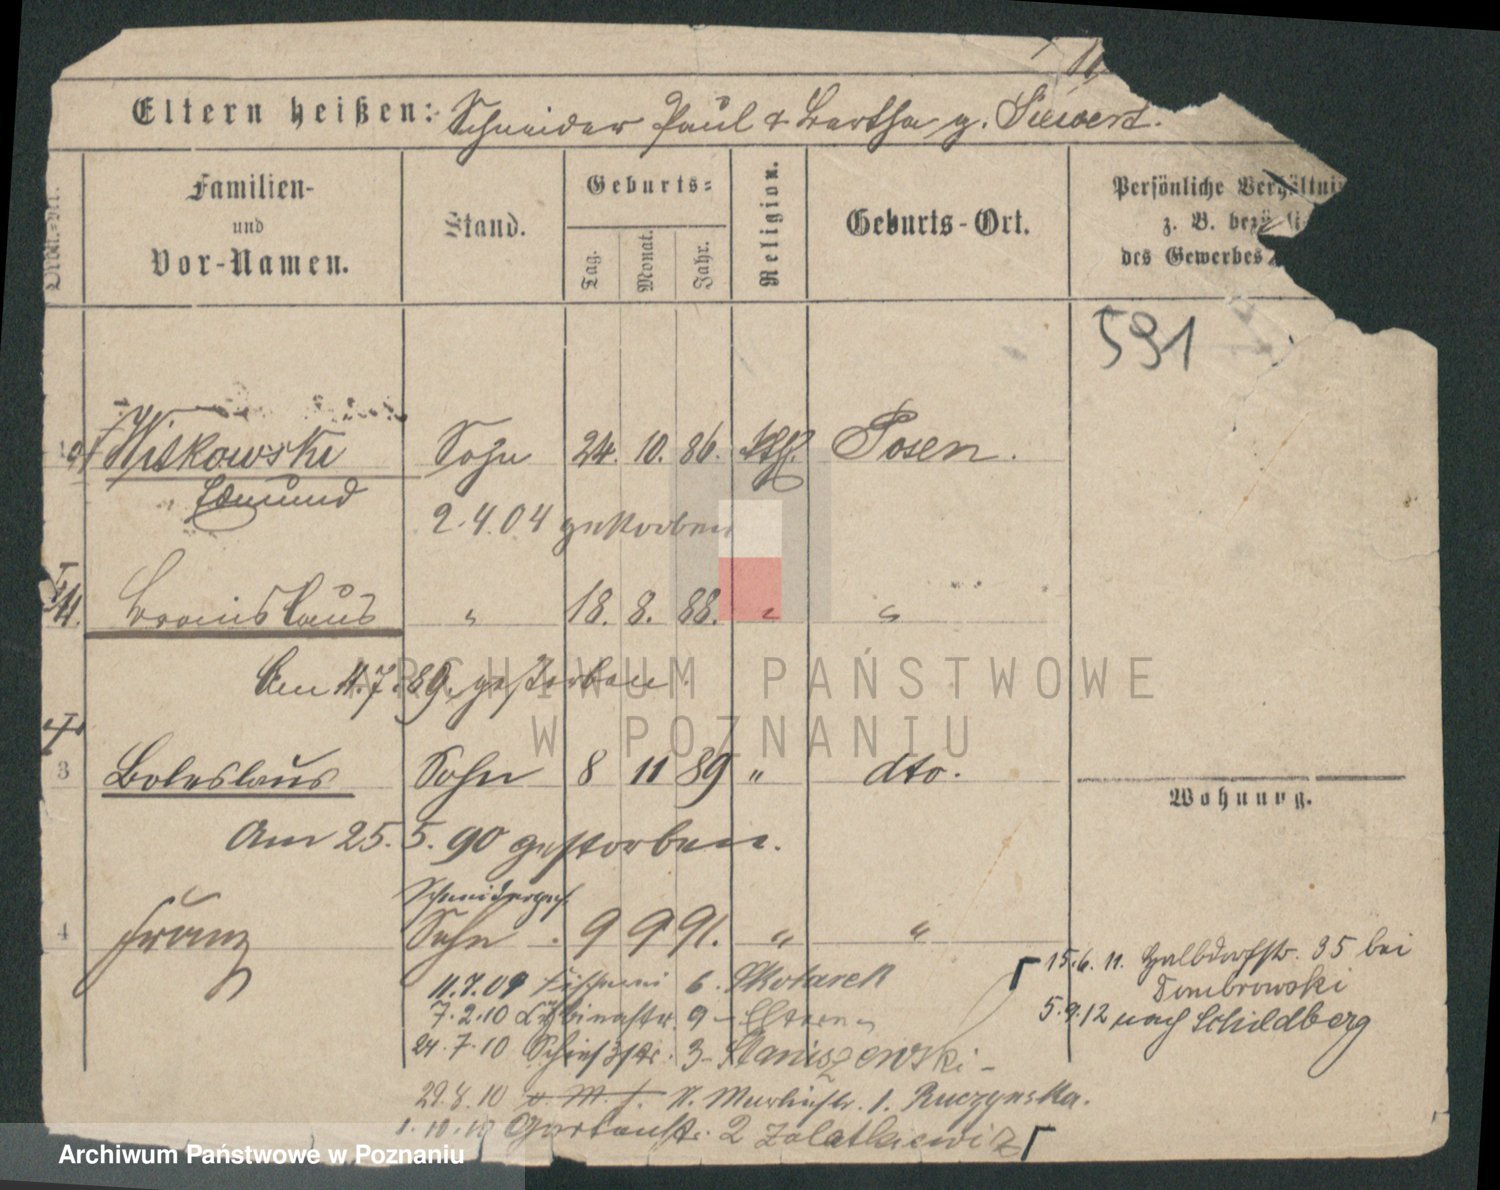 Eltern heißen: Schneider Paul & Bertha g. Siewert.
Ordn.-Nr.
Familien-
und
Vor-Namen.
Stand.
Geburts-
Tag.
Monat.
Jahr.
Religion.
Geburts-Ort.
Persönliche Verhältni
z. B. bezü
des Gewerbes
591
Witkowski Sohn 24. 10. 86. Kth. Posen.
Edmund
2.4.04 gestorben
Bronislaus " 18. 8. 88. " "
Am 11.7.89. gestorben.
3 Boleslaus Sohn 8 11 89 " dto.
Wohnung.
Am 25.5.90 gestorben.
Schneiderges.
4 Franz Sohn . 9 9 91. " "
15.6.11. Halbdorfstr. 35 bei
Dombrowski
5.9.12 nach Schildberg
11.7.09 6. Skotarek
7.2.10 9 - Eltern -
24.7.10 Schießstr. 3 - Staniszewski -
29.8.10 1. Ruczynska.
1.10.10 Gartenstr. 2 Zalatkiewicz
ARCHIWUM PAŃSTWOWE
W POZNANIU
Archiwum Państwowe w Poznaniu